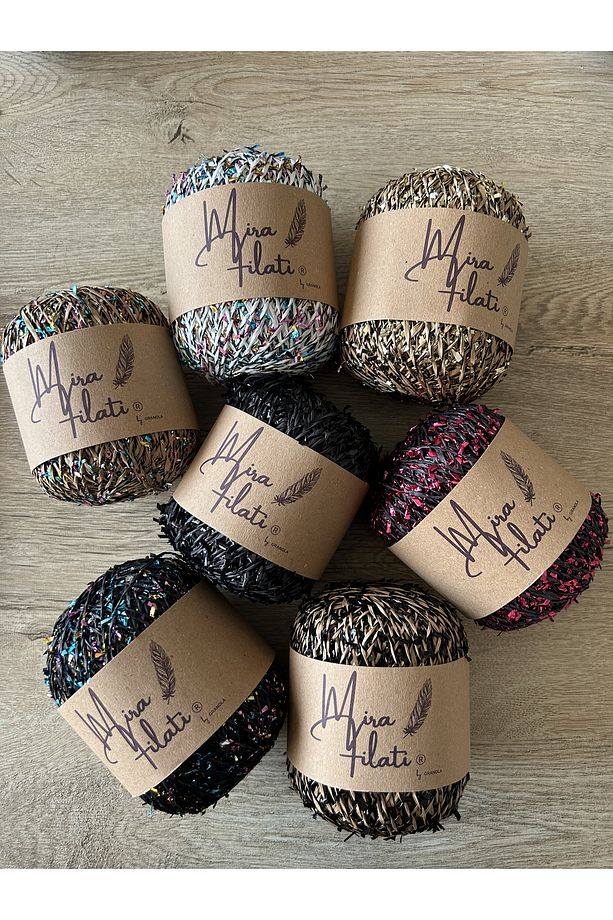 Mira
Filati ®
by GRANOLA
Mira
Filati ®
by GRANOLA
Mira
Filati ®
by GRANOLA
Mira
Filati ®
by GRANOLA
Mira
Filati ®
by GRANOLA
Mira
Filati ®
by GRANOLA
Mira
Filati ®
by GRANOLA